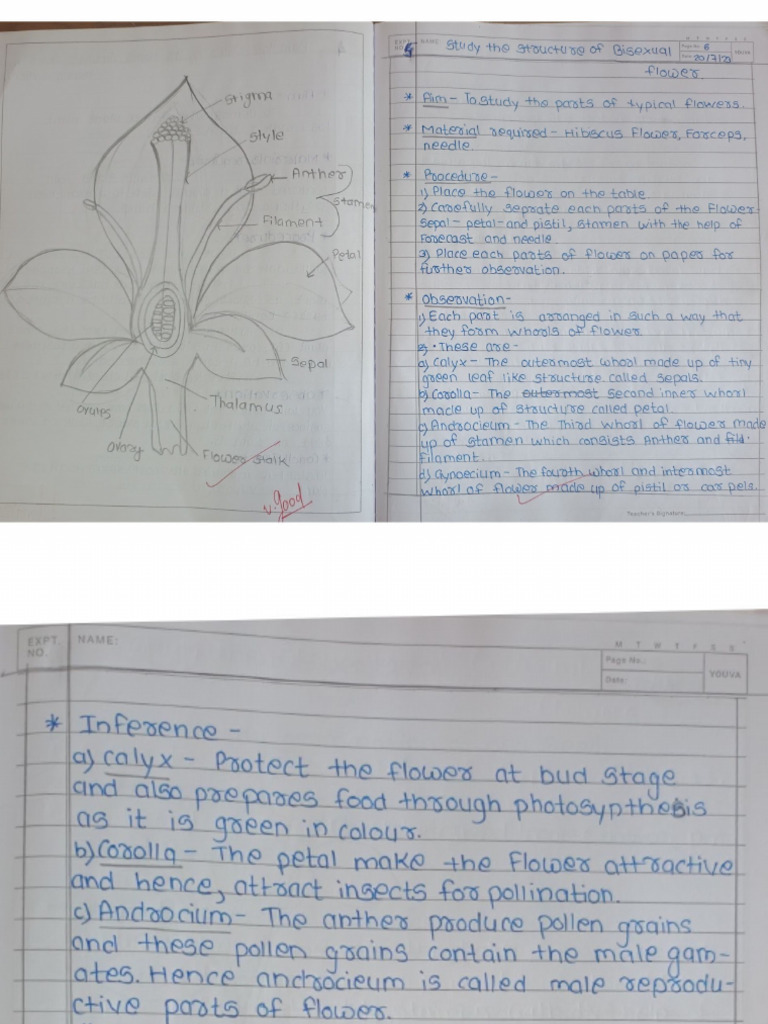 Stigma
Style
Anther
Stamen
Filament
Petal
Sepal
Thalamus
ovules
ovary
Flower stalk
v.good
EXPT. NO. 5 NAME: Study the structure of Bisexual
flower.
M T W T F S S
Page No.: 6
Date: 20/7/23
YOUVA
* Aim - To study the parts of typical flowers.
* Material required - Hibscus flower, Forceps,
needle.
* Procedure -
1) Place the flower on the table
2) Carefully seprate each parts of the flower
Sepal - petal - and pistil, stamen with the help of
Forecast and needle.
3) Place each parts of flower on paper for
further observation.
* Observation -
1) Each part is arranged in such a way that
they form whorls of flower
2) • These are -
a) Calyx - The outermost whoal made up of tiny
green leaf like structure called sepals.
b) Corolla - The outermost second inner whorl
made up of structure called petal.
c) Androcieum - The Third whorl of flower made
up of stamen which consists Anther and
filament.
d) Gynoecium - The fourth whorl and intermost
whorl of flower made up of pistil or carpels.
Teacher's Signature:
EXPT. NO. NAME:
M T W T F S S
Page No.:
Date:
YOUVA
* Inference -
a) calyx - Protect the flower at bud stage
and also prepares food through photosypthesis
as it is green in colour.
b) Corolla - The petal make the flower attractive
and hence, attract insects for pollination.
c) Androcium - The anther produce pollen grains
and these pollen grains contain the male gam-
ates. Hence androcieum is called male reprodu-
ctive parts of flower.